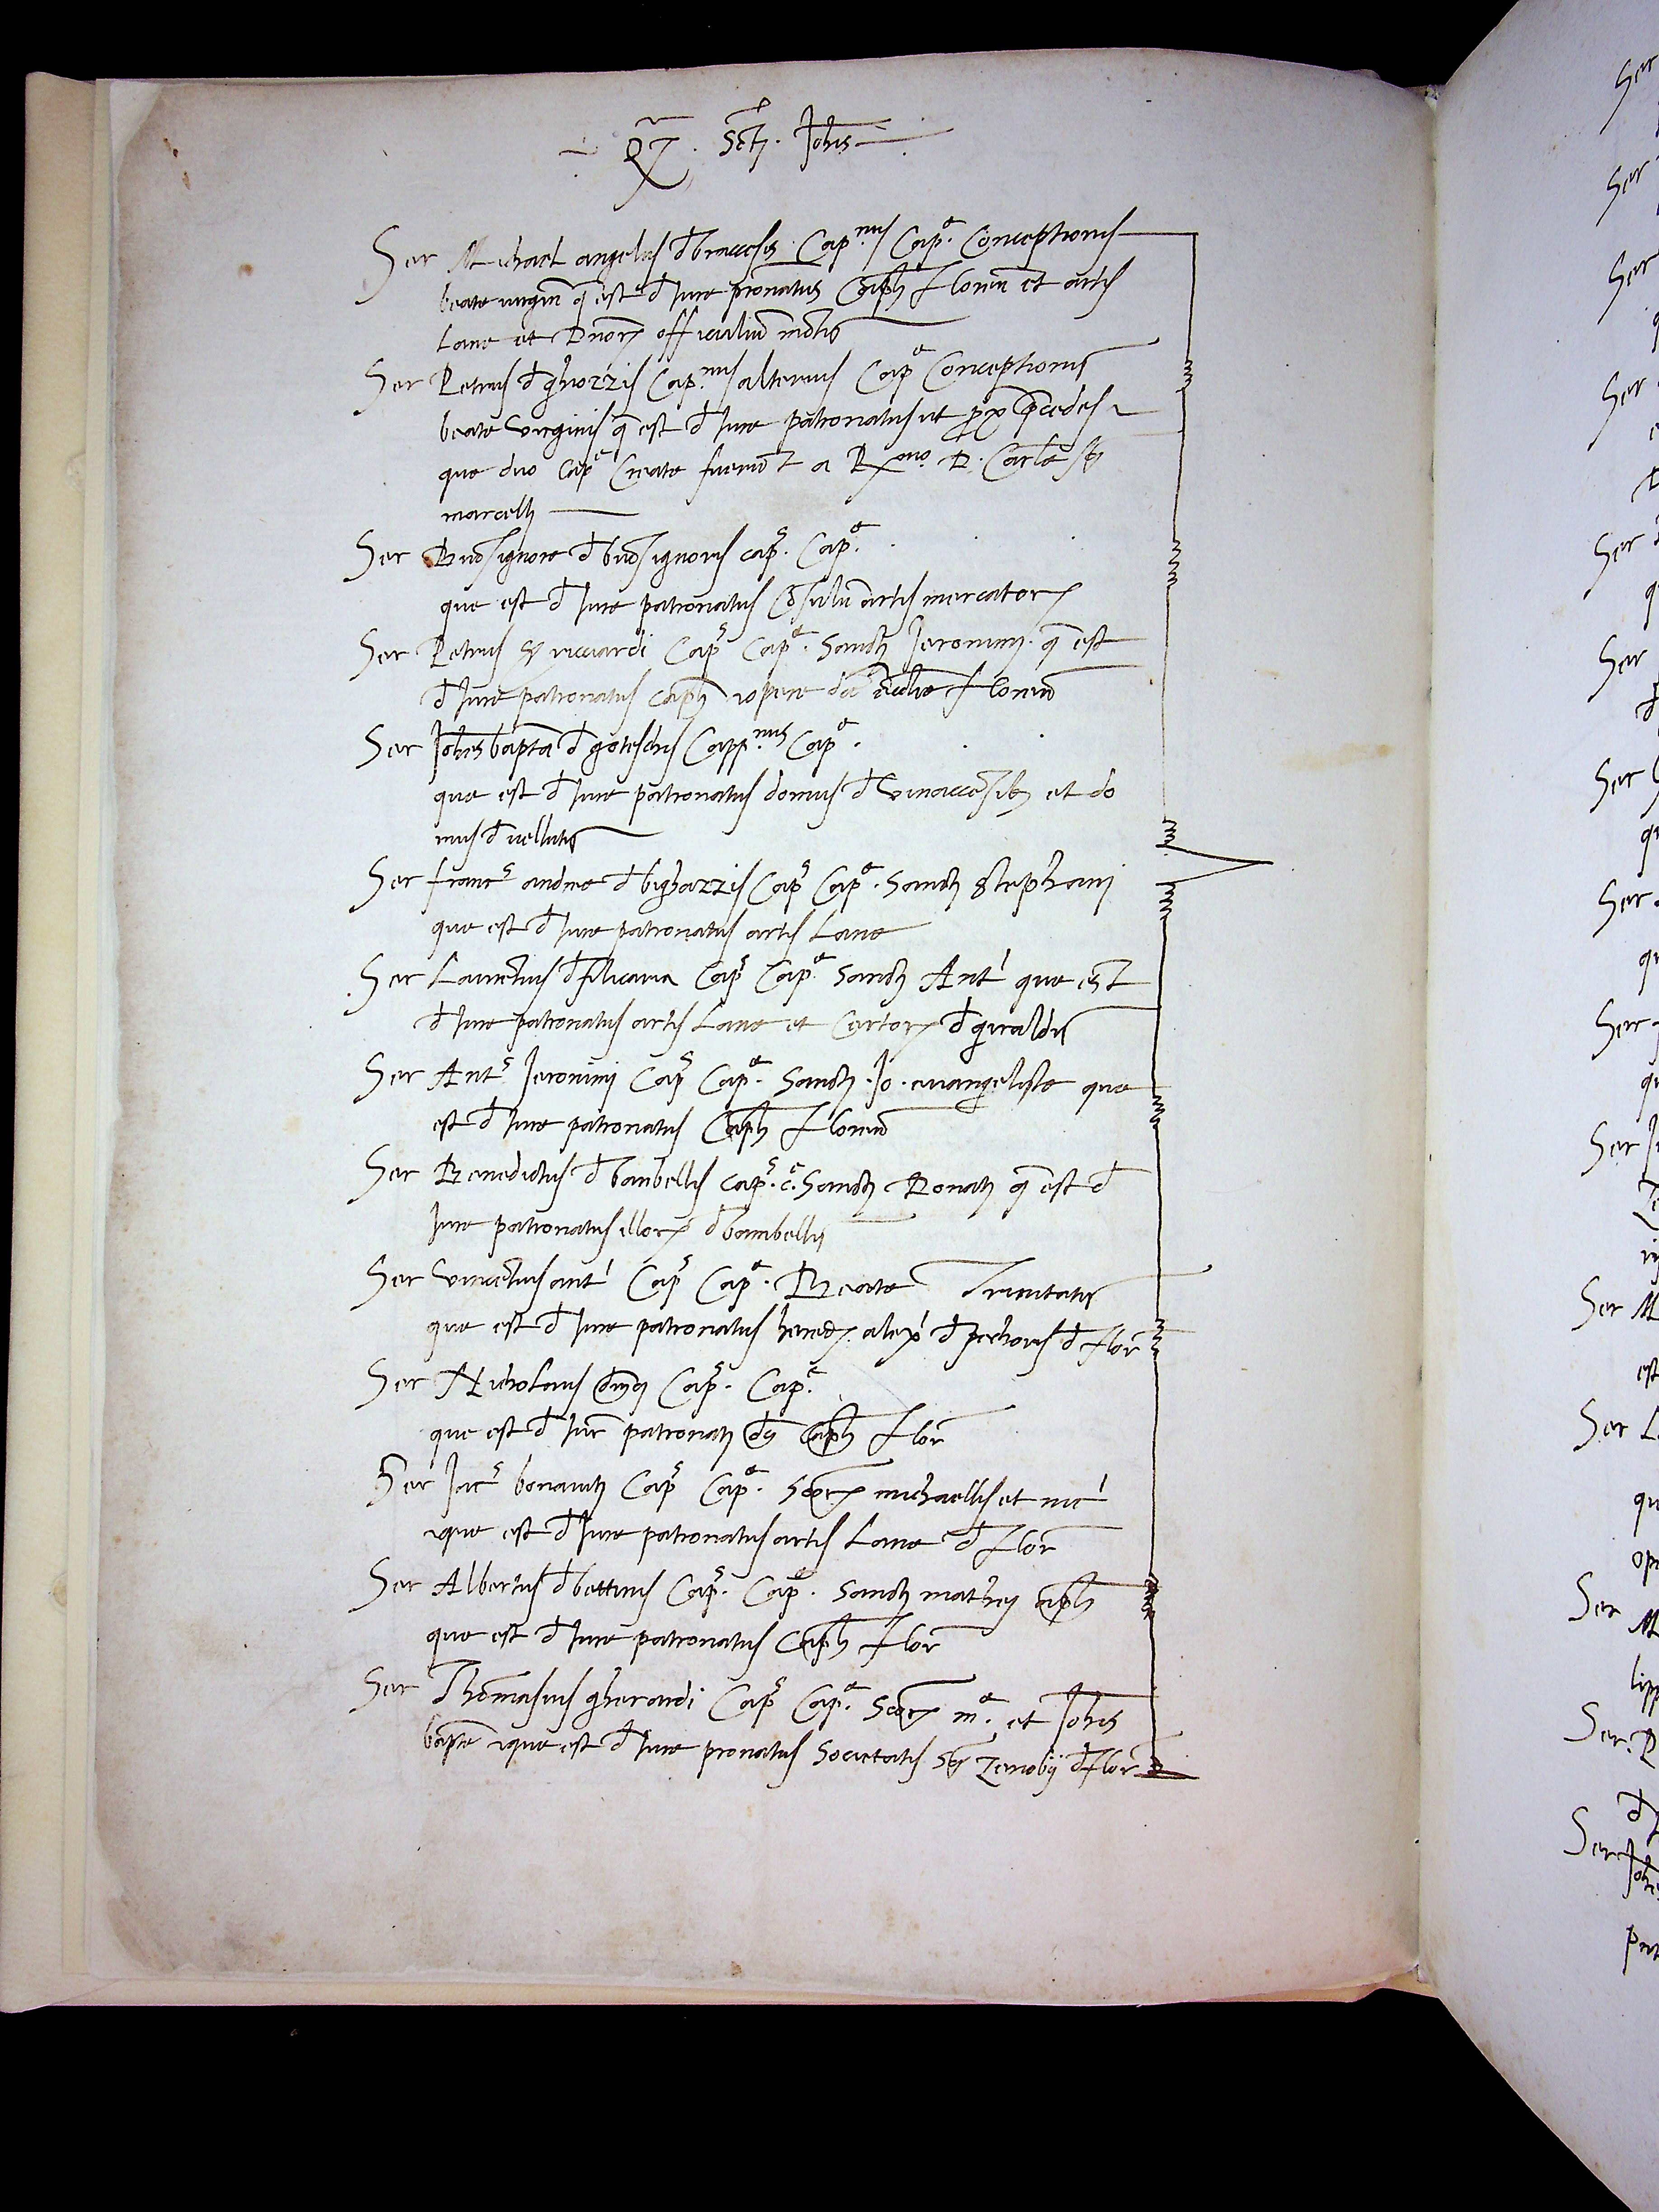 Scti. Johis
Ser Michael angelus d braccesis Cap.nus Cape. Conceptionis
beate uirgin q est d Jure pronatus Capli Floren et artis
Lane et Dnor officialiu
Ser Petrus d ghozzis Cap.nus alterius Cape Conceptionis
beate Virginis q est d Jure patronatus ut prox precedes
que duo Cape Create fuerut a Rmo. D. Carle
marcelli
Ser Buosignore d buosignoris caps. Cape.
que est d Jure patronatus Cosulu artis mercator
Ser Petrus ricciardi Caps Cape. Sancti Jeronimi. q est
d Jure patronatus capli opere florenti
Ser Johesbapta d goteschis Capp.nus Cape.
que est d Jure patronatus domus d Vinaccesib et do
mus d uellutis
Ser francs andree d bighazzis Caps Cape. Sancti Stephani
que est d Jure patronatus artis Lane
Ser Lauretius d filicaria Caps Cape. Sancti Anti que est
d Jure patronatus artis Lane et Certor d giraldis
Ser Ants Jeronimi Caps Cape. Sancti. Jo. euangeliste que
est d Jure patronatus Capli Floren
Ser Benedictus d banbellis caps. ce. Sancti Donati q est d
Jure patronatus illor d bambellis
Ser Vincetius anti Caps Cape. Beate Trinitatis
que est d Jure patronatus hered. alexi d pechoris d Flor
Ser Nicholaus Caps. Cape.
que est d Jur patronat Capli Flor
Ser Jacs bonaiuti Caps Cape. Scor michaellis et nici
que est d Jure patronatus artis Lane d Flor
Ser Albertus d bettinis Caps. Cape. Sancti mathei apli
que est d Jure patronatus Capli Flor
Ser Thomasius gherardi Caps Cape. Scor me. et Johis
bapte que est d Jure pronatus Societatis Sti Zenobij d Flor